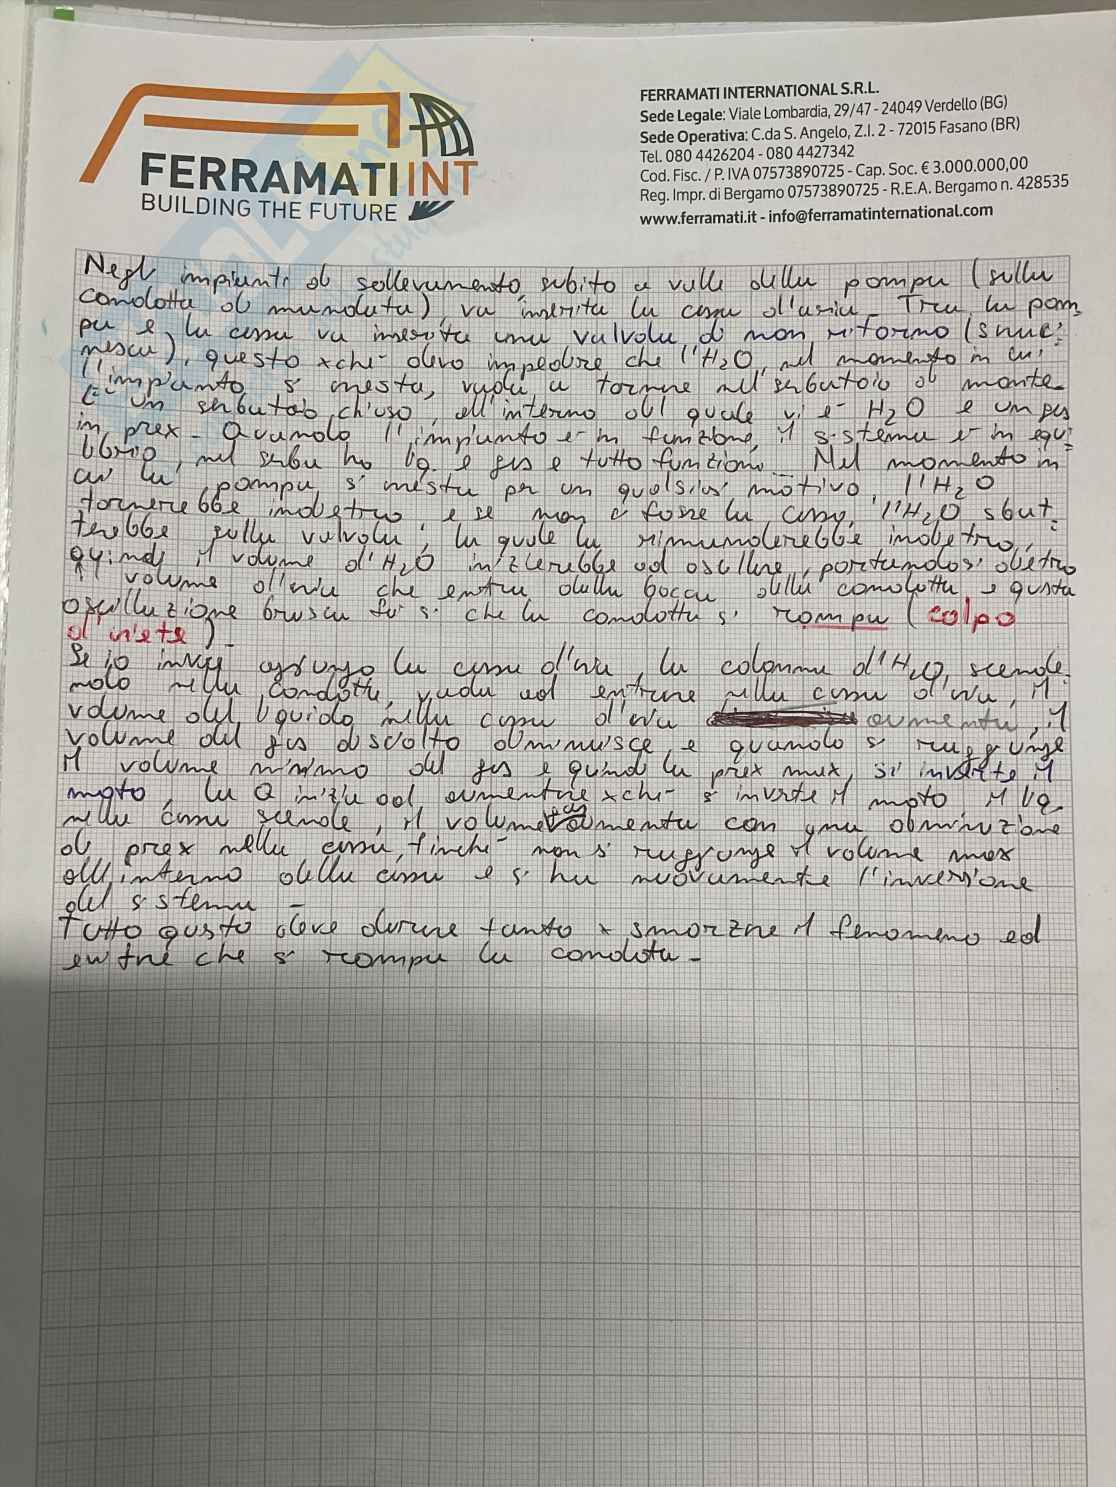 FERRAMATI INT
BUILDING THE FUTURE
FERRAMATI INTERNATIONAL S.R.L.
Sede Legale: Viale Lombardia, 29/47 - 24049 Verdello (BG)
Sede Operativa: C.da S. Angelo, Z.I. 2 - 72015 Fasano (BR)
Tel. 080 4426204 - 080 4427342
Cod. Fisc. / P. IVA 07573890725 - Cap. Soc. € 3.000.000,00
Reg. Impr. di Bergamo 07573890725 - R.E.A. Bergamo n. 428535
www.ferramati.it - info@ferramatinternational.com
Negli impianti di sollevamento, subito a valle della pompa (sulla
condotta di mandata), va inserita la cassa d'aria. Tra la pom
pa e la cassa va inserita una valvola di non ritorno (saraci
nesca), questo xchè devo impedire che l'H2O, nel momento in cui
l'impianto si arresta, vada a tornare nel serbatoio di monte.
È un serbatoio chiuso, all'interno del quale vi è H2O e un gas
in prex. Quando l'impianto è in funzione, il sistema è in equi
librio, nel serba ho liq. e gas e tutto funziona. Nel momento in
cui la pompa si arresta per un qualsiasi motivo, l'H2O
tornerebbe indietro, e se non ci fosse la cassa, l'H2O sbat
terebbe sulla valvola, la quale la rimanderebbe indietro,
quindi il volume d'H2O inizierebbe ad oscillare, portandosi dietro
il volume d'aria che entra dalla bocca della condotta, e questa
oscillazione brusca fa sì che la condotta si rompa (colpo
d'ariete).
Se io invece aggiungo la cassa d'aria la colonna d'H2O, scende
ndo nella condotta, vada ad entrare nella cassa d'aria, il
volume del liquido nella cassa d'aria aumenta, il
volume del gas disciolto diminuisce, e quando si raggiunge
il volume minimo del gas e quindi la prex max, si inverte il
moto, la Q inizia ad aumentare xchè si inverte il moto, il liq.
nella cassa scende, il volume gas aumenta con una diminuzione
di prex nella cassa, finchè non si raggiunge il volume max
all'interno della cassa e si ha nuovamente l'inversione
del sistema.
Tutto questo deve durare tanto x smorzare il fenomeno ed
evitare che si rompa la condotta.